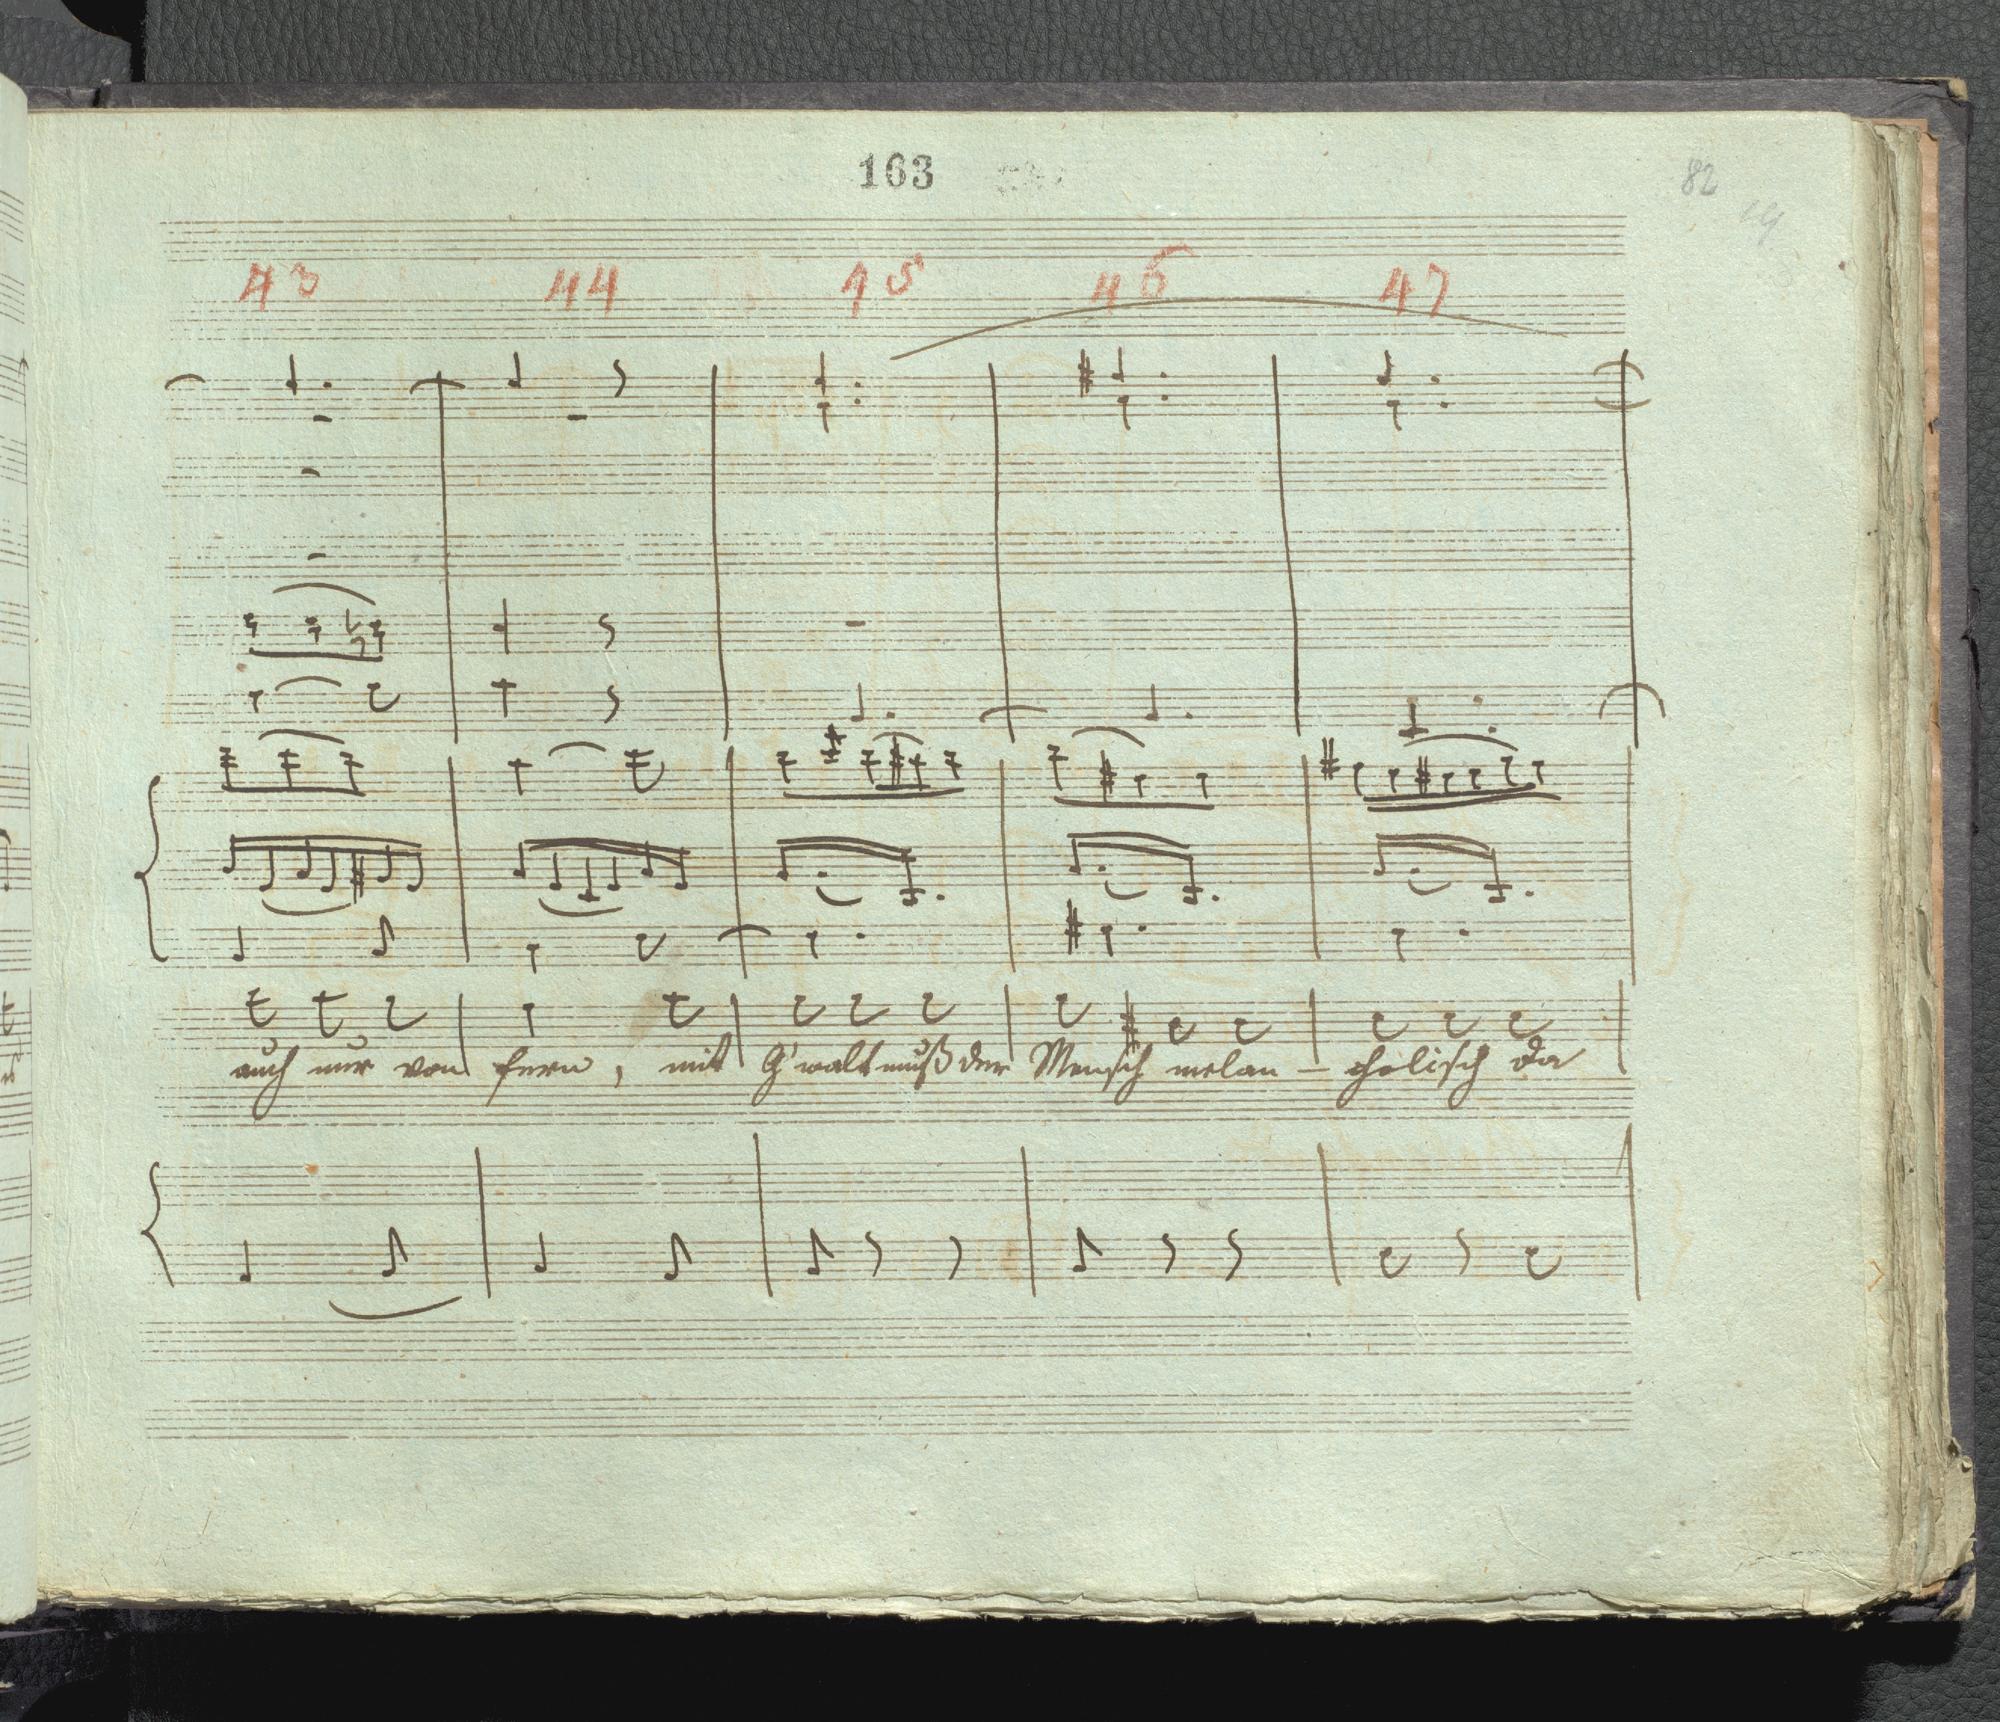 163
82
43 44 45 46 47
auch nur von fern, mit G'walt muß der Mensch melan - cholisch da